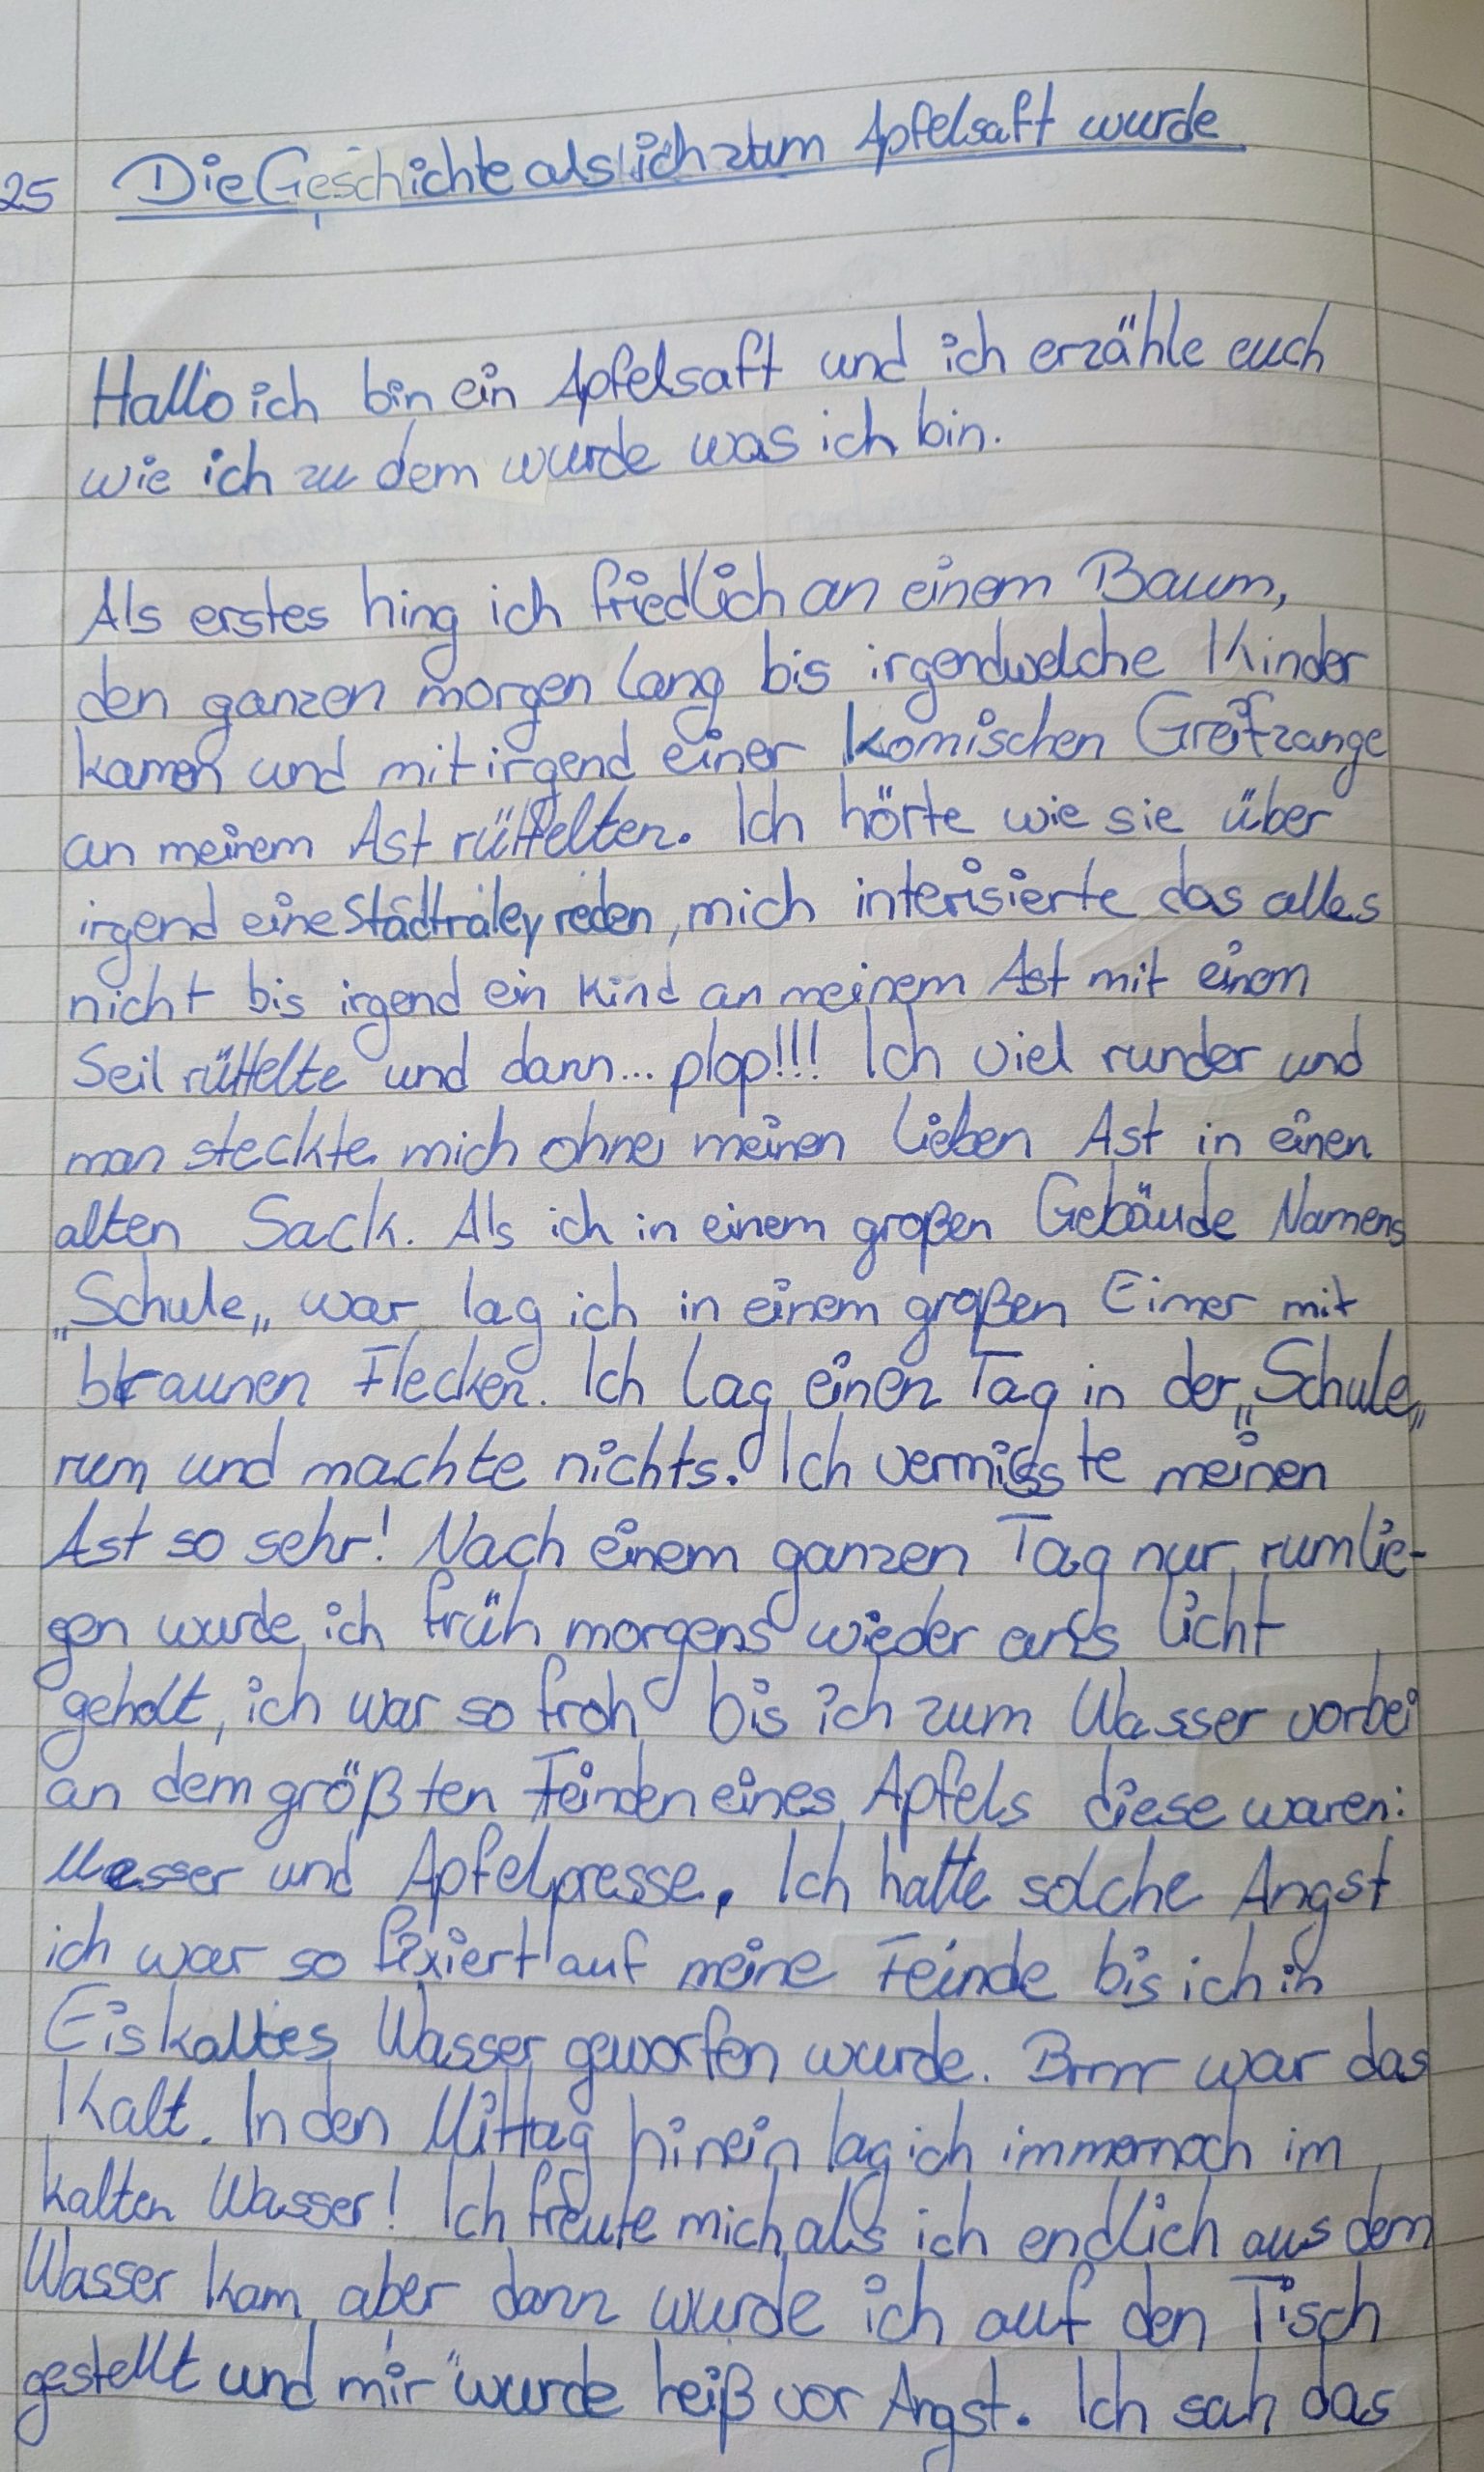 25 Die Geschichte als ich zum Apfelsaft wurde
Hallo ich bin ein Apfelsaft und ich erzähle euch
wie ich zu dem wurde was ich bin.
Als erstes hing ich friedlich an einem Baum,
den ganzen morgen lang bis irgendwelche Kinder
kamen und mit irgend einer komischen Greifzange
an meinem Ast rüttelten. Ich hörte wie sie über
irgend eine Stadtraley reden, mich interisierte das alles
nicht bis irgend ein Kind an meinem Ast mit einem
Seil rüttelte und dann... plop!!! Ich viel runder und
man steckte mich ohne meinen lieben Ast in einen
alten Sack. Als ich in einem großen Gebäude Namens
„Schule„ war lag ich in einem großen Eimer mit
braunen Flecken. Ich lag einen Tag in der „Schule„
rum und machte nichts. Ich vermisste meinen
Ast so sehr! Nach einem ganzen Tag nur rumlie-
gen wurde ich früh morgens wieder ans licht
geholt, ich war so froh bis ich zum Wasser vorbei
an dem größten Feinden eines Apfels diese waren:
Messer und Apfelpresse. Ich hatte solche Angst
ich war so fixiert auf meine Feinde bis ich in
Eiskaltes Wasser geworfen wurde. Brrrr war das
Kalt. In den Mittag hinein lag ich immernoch im
kalten Wasser! Ich freute mich als ich endlich aus dem
Wasser kam aber dann wurde ich auf den Tisch
gestellt und mir wurde heiß vor Angst. Ich sah das